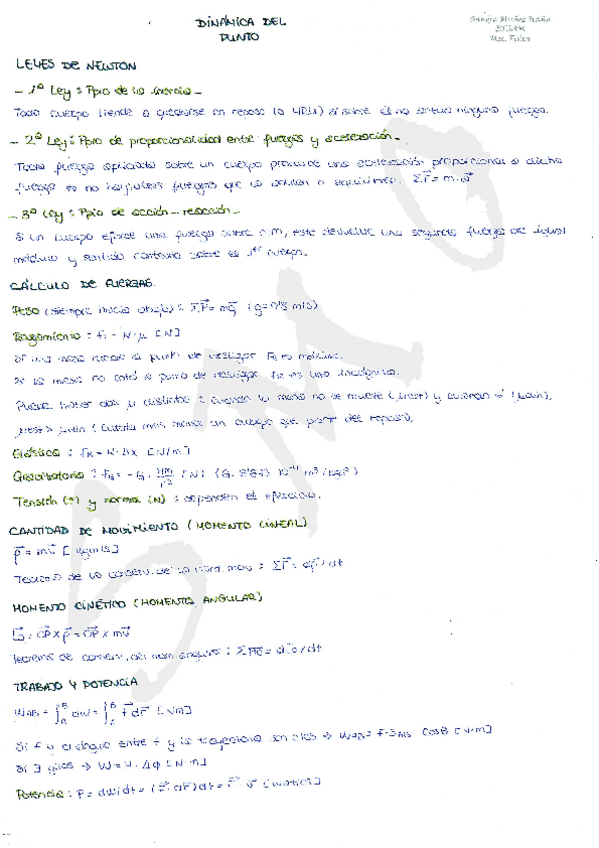 DINÁMICA DEL
PUNTO
LEYES DE NEWTON
- 1ª Ley: Ppio de la inercia -
Todo cuerpo tiende a quedarse en reposo (o MRU) si sobre él no actúa ninguna fuerza.
- 2ª Ley: Ppio de proporcionalidad entre fuerzas y aceleración -
Toda fuerza aplicada sobre un cuerpo produce una aceleración proporcional a dicha
fuerza si no hay fuerzas que la anulen o equilibren.
- 3ª Ley: Ppio de acción - reacción -
Si un cuerpo ejerce una fuerza sobre este devuelve una segunda fuerza de igual
módulo y sentido contrario sobre el 1er cuerpo.
CÁLCULO DE FUERZAS
Peso (siempre hacia abajo): ΣF = mg
Rozamiento: fr = N·μ [N]
Si una masa a punto de deslizar Fr es máxima.
Si la masa no está a punto de deslizar Fr es una incógnita.
Puede haber dos μ distintos: cuando la masa no se mueve (μest) y cuando sí (μcin),
μest > μcin (cuesta más mover un cuerpo que parte del reposo).
Elástica: fk = K·Δx [N/m]
Gravitatoria: fg = -G · Mm/r² [N]
Tensión (T) y normal (N): dependen el ejercicio.
CANTIDAD DE MOVIMIENTO (MOMENTO LINEAL)
p = mv [kgm/s]
Teorema de la conserv. de la cant. mov: ΣF = dp/dt
MOMENTO CINÉTICO (MOMENTO ANGULAR)
OP × p = OP × mv
Teorema de conserv. del mom angular:
TRABAJO Y POTENCIA
WAB = ∫AB dW = ∫AB f dr [Nm]
Si f y el ángulo entre f y la trayectoria son ctes → WAB = f·SAB · cosθ [N·m]
Si ∃ giros → W = M · Δφ [N·m]
Potencia: P = dW/dt = (F·dr)/dt = F · v [watios]